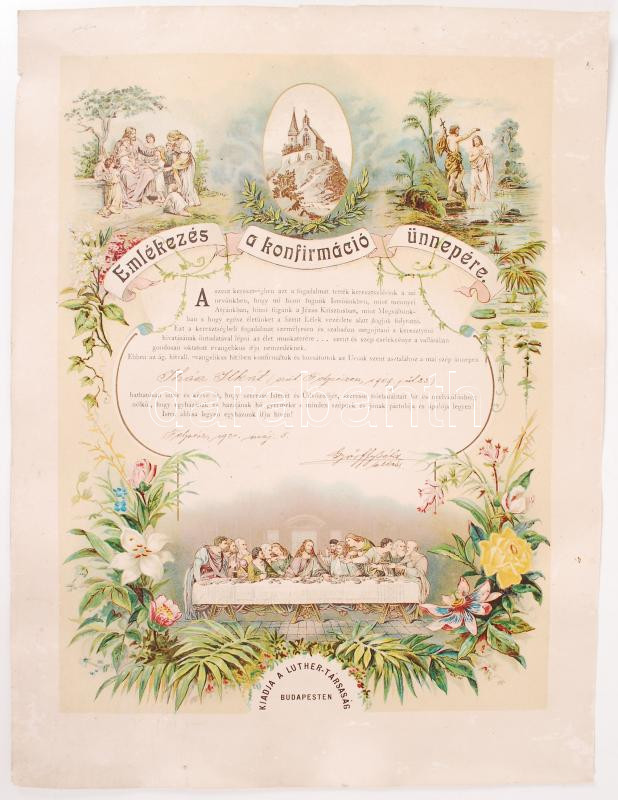 Emlékezés a konfirmáció ünnepére.
A szent keresztségben azt a fogadalmat tették keresztszüleink a mi
nevünkben, hogy mi hinni fogunk Istenünkben, mint mennyei
Atyánkban, hinni fogunk a Jézus Krisztusban, mint Megváltónk-
ban s hogy egész életünket a Szent Lélek vezérlete alatt fogjuk folytatni.
Ezt a keresztségbeli fogadalmat személyesen és szabadon megújítani s keresztyéni
hivatásának öntudatával lépni az élet munkaterére szent és szép cselekvénye a vallásilag
gondosan oktatott evangélikus ifjú nemzedéknek.
Ebben az ág. hitv. evangélikus hitben konfirmáltuk és bocsátottuk az Urnak szent asztalához a mai szép ünnepen
1908 júl. 23.
hathatósan intve és kérve őt, hogy szeresse Istenét és Üdvözítőjét, keresse
hogy egyházának és hazájának hű gyermeke s minden szépnek és jónak pártolója és ápolója legyen.
Isten áldása legyen egyházunk ifjú hívén!
1920. máj. 5.
KIADJA A LUTHER-TÁRSASÁG
BUDAPESTEN
darabanth